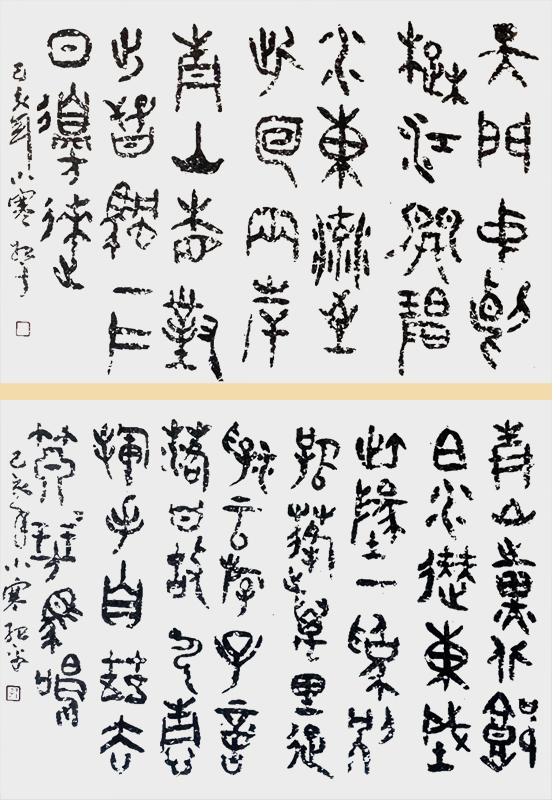 天門中斷
楚江開碧
水東流至
此回兩岸
青山相對
出孤帆一片
日邊來
己亥年小寒
青山橫北郭
白水繞東城
此地一為別
孤蓬萬里征
浮雲游子意
落日故人情
揮手自茲去
蕭班馬鳴
己亥年小寒